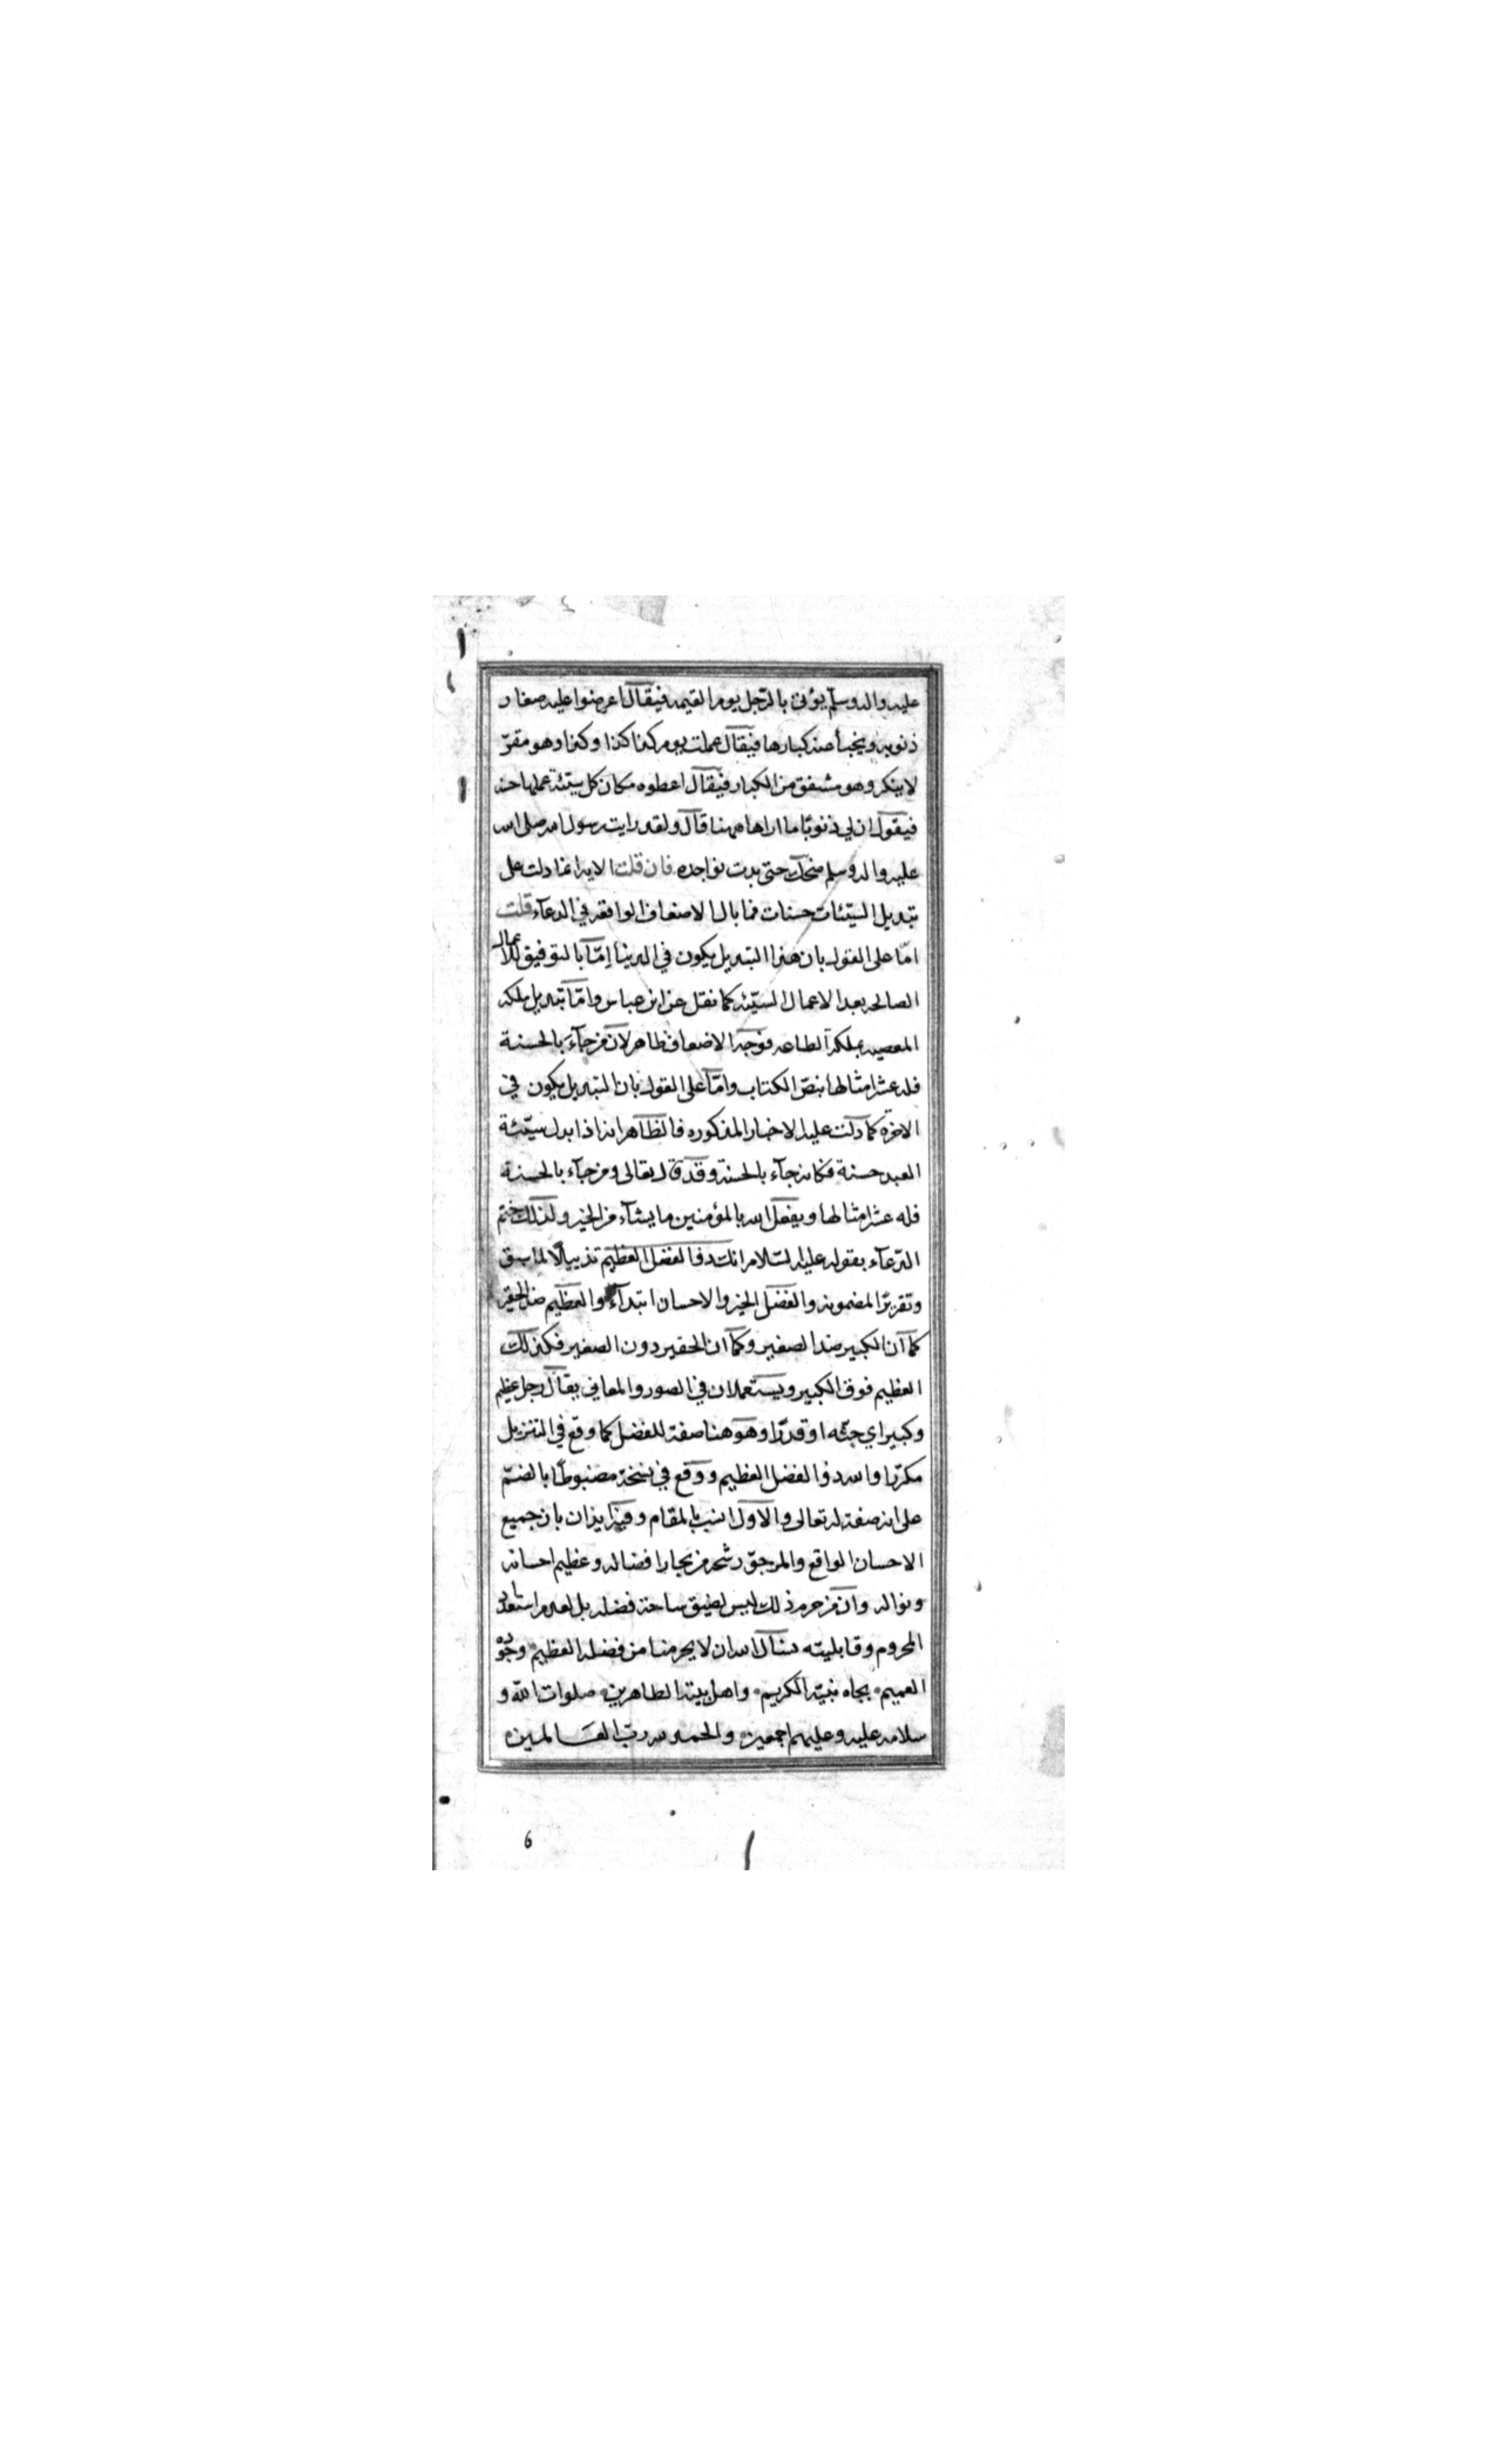 عليه واله وسلم يؤتى بالرّجل يوم القيمه فيقال اعرضوا عليه صغار
ذنوبه ويخبأ عنه كبارها فيقال عملت يوم كذا كذا وكذا وهو مقرّ
لا ينكر وهو مشفق من الكبار فيقال اعطوه مكان كل سيّئة عملها حسنه
فيقول ان لي ذنوبًا ما اراها ههنا قال ولقد رايت رسول الله صلى الله
عليه واله وسلم ضحك حتى بدت نواجده فان قلت الايه انما دلت على
تبديل السيّئات حسنات فما بال الاضعاف الواقعه في الدعآء قلت
امّا على القول بان هذا التبديل يكون في الدنيا إمّا بالتوفيق للاعمال
الصالحه بعد الاعمال السيّئه كما نقل عن ابن عباس وامّا تبديل ملكه
المعصيه بملكة الطاعه فوجه الاضعاف ظاهر لان من جآءَ بالحسنة
فله عشر امثالها بنصّ الكتاب وامّا على القول بان التبديل يكون في
الاخرة كما دلت عليه الاخبار المذكوره فالظاهر انه اذا بدل سيّئة
العبد حسنة فكانه جآء بالحسنة وقد قال تعالى ومن جآء بالحسنة
فله عشر امثالها ويفعل الله بالمؤمنين ما يشآء من الخير ولذلك ختم
الدّعآء بقوله عليه السّلام انك ذو الفضل العظيم تذييلًا لما سبق
وتقريرًا لمضمونه والفضل الخير والاحسان ابتدآءً والعظيم ضد الحقير
كما ان الكبير ضد الصغير وكما ان الحقير دون الصغير فكذلك
العظيم فوق الكبير ويستعملان في الصور والمعاني يقال رجل عظيم
وكبير اي جثّه او قدرًا وهو هنا صفة للفضل كما وقع في التنزيل
مكرّرا والله ذو الفضل العظيم ووقع في نسخة مضبوطًا بالضمّ
على انه صفة له تعالى والاول انسب بالمقام وفيه ايذان بان جميع
الاحسان الواقع والمرجوّ رشحه من بحار افضاله وعظيم احسانه
ونواله وان من حرم ذلك ليس لضيق ساحة فضله بل لعدم استعداد
المحروم وقابليته نسال الله ان لا يحرمنا من فضله العظيم وجوده
العميم بجاه نبيّه الكريم واهل بيته الطاهرين صلوات اللّه و
سلامه عليه وعليهم اجمعين والحمد لله ربّ العَالمين
6